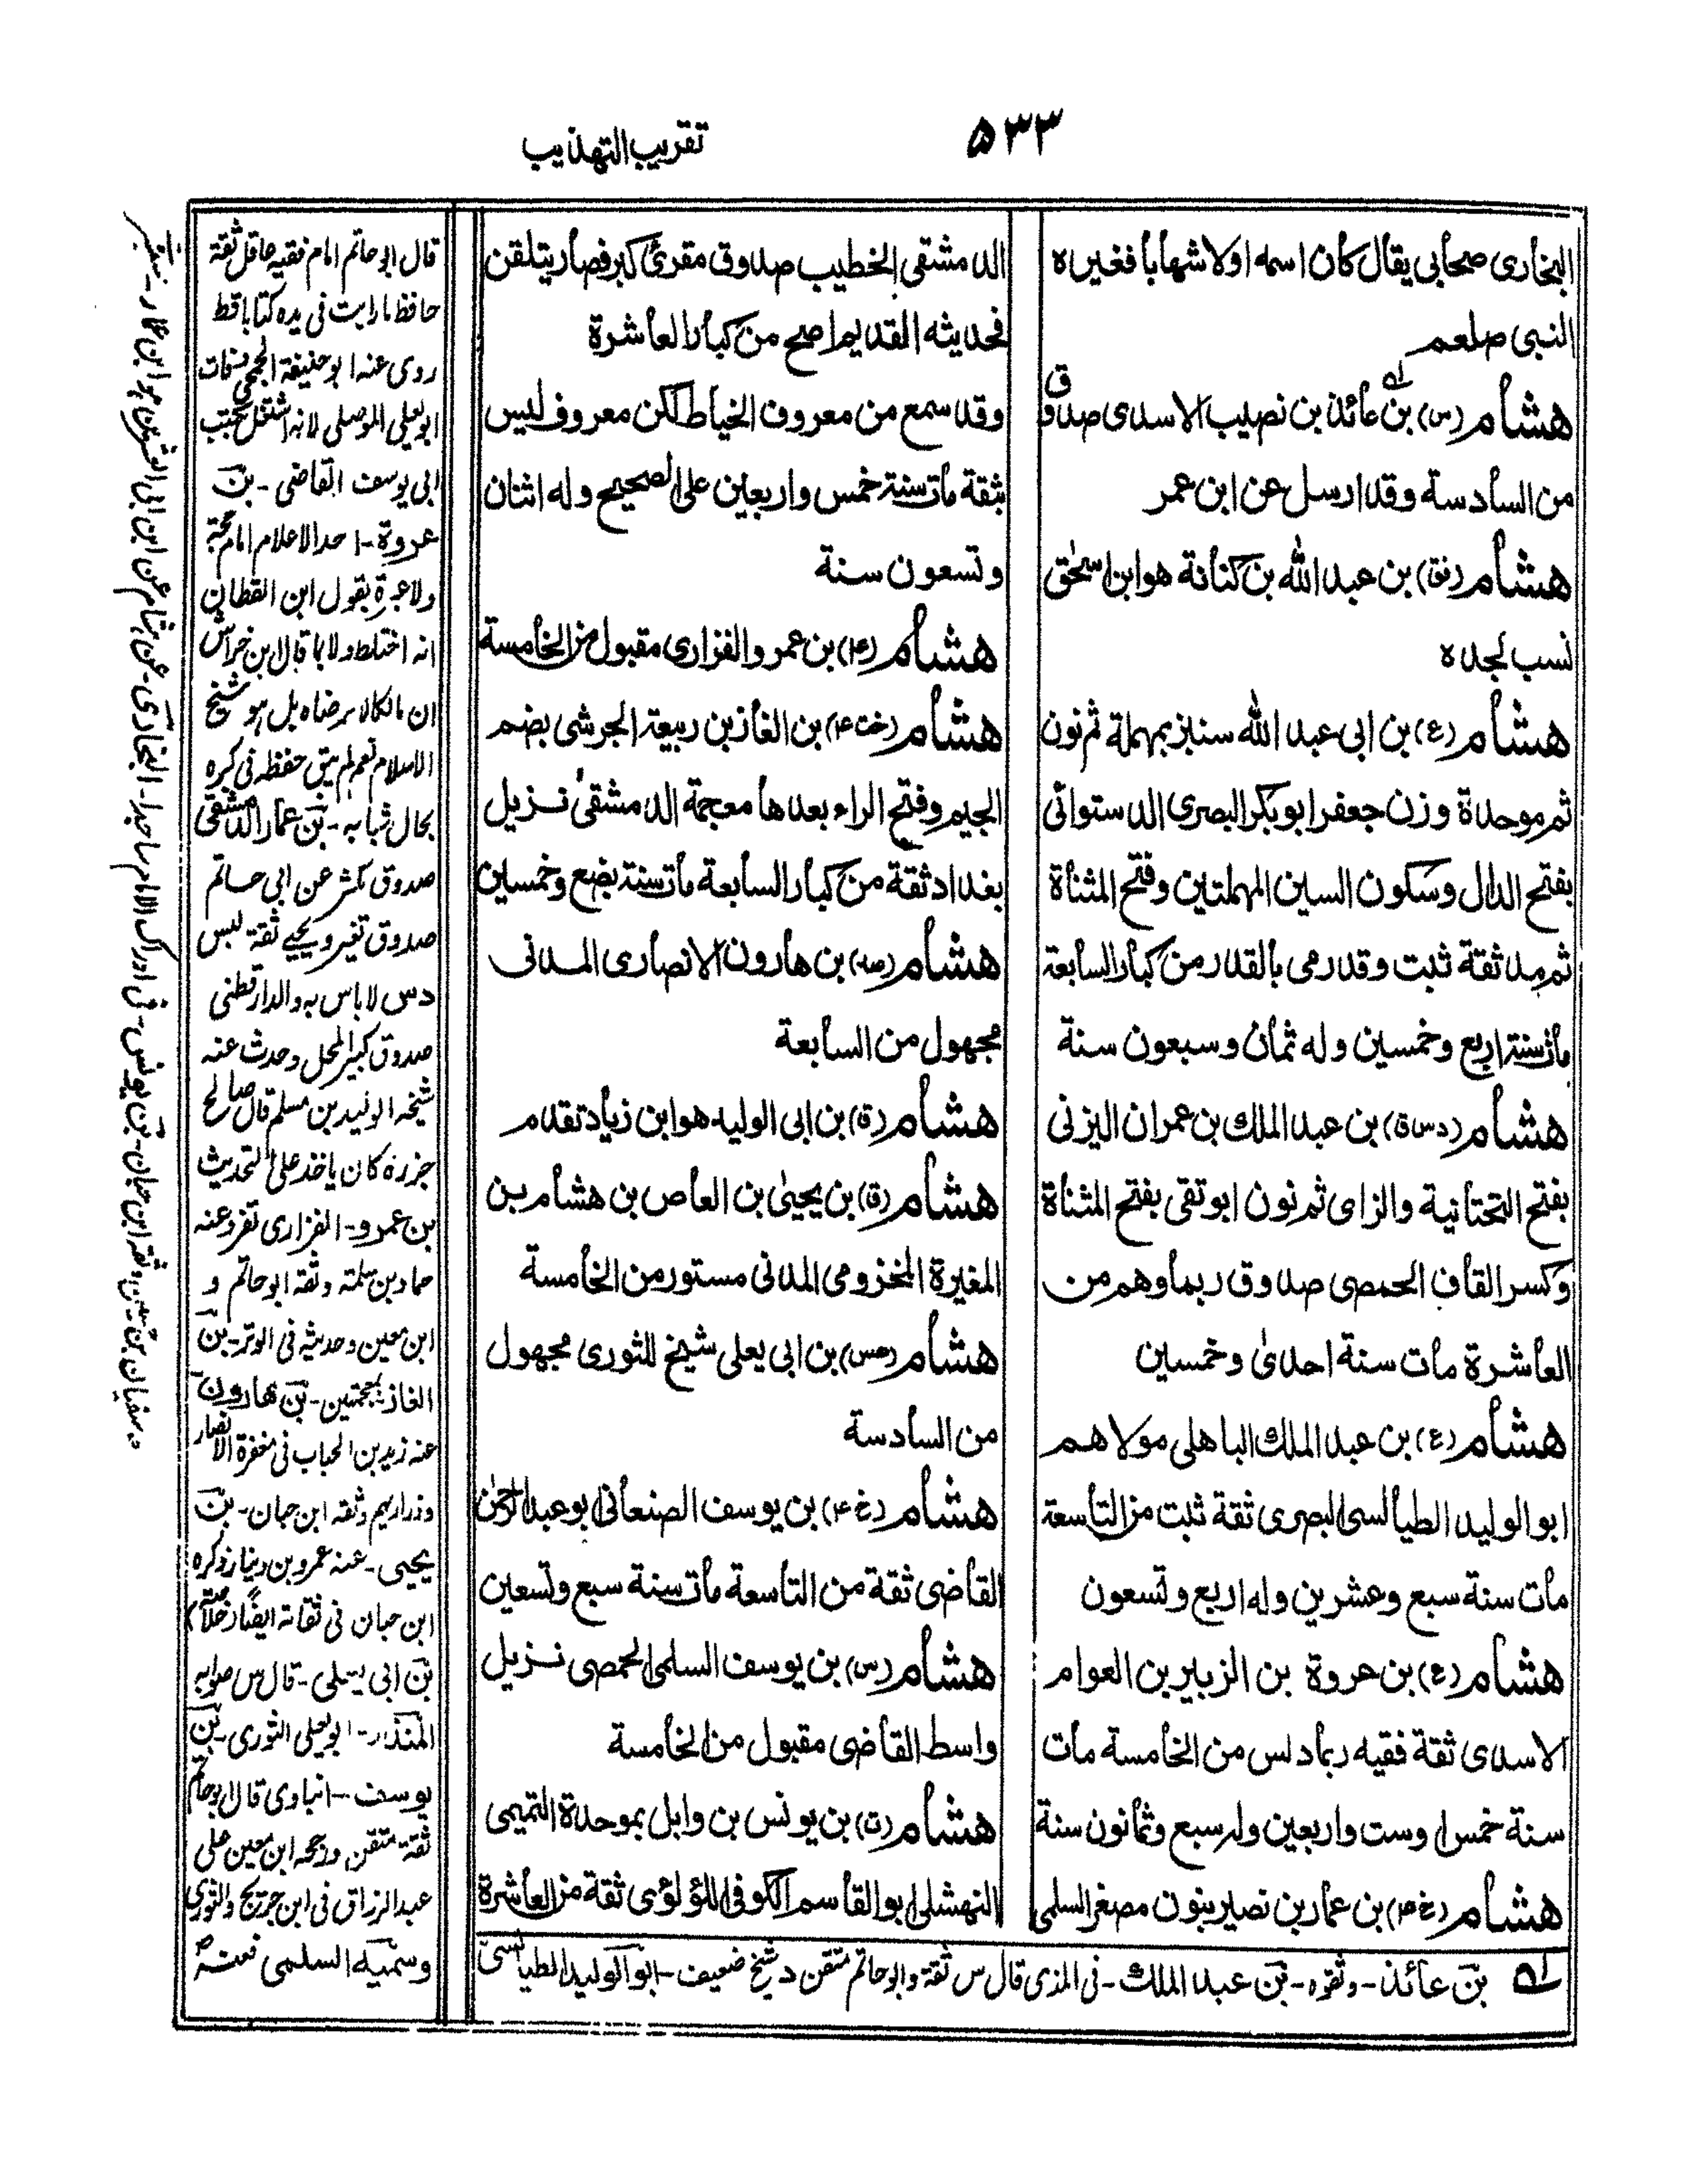 ٥٣٣
تقريب التهذيب
البخارى صحابى يقال كان اسمه اولا شهابا فغيره
النبى صلعم
هشام (س) بن عائذ بن نصيب الاسدى صدوق
من السادسة وقد ارسل عن ابن عمر
هشام بن عبد الله بن كنانة هو ابن اسحٰق
نسب لجده
هشام (ع) بن ابى عبد الله سنبز بمهملة ثم نون
ثم موحدة وزن جعفر ابو بكر البصرى الدستوائى
بفتح الدال وسكون السين المهملتين وفتح المثناة
ثم مد ثقة ثبت وقد رمى بالقدر من كبار السابعة
مات سنة اربع وخمسين وله ثمان وسبعون سنة
هشام (د س ق) بن عبد الملك بن عمران اليزنى
بفتح التحتانية والزاى ثم نون ابو تقى بفتح المثناة
وكسر القاف الحمصى صدوق ربما وهم من
العاشرة مات سنة احدىٰ وخمسين
هشام (ع) بن عبد الملك الباهلى مولاهم
ابو الوليد الطيالسى البصرى ثقة ثبت من التاسعة
مات سنة سبع وعشرين وله اربع وتسعون
هشام (ع) بن عروة بن الزبير بن العوام
الاسدى ثقة فقيه ربما دلس من الخامسة مات
سنة خمس او ست واربعين وله سبع وثمانون سنة
هشام (خ م) بن عمار بن نصير بنون مصغر السلمى
الدمشقى الخطيب صدوق مقرئ كبر فصار يتلقن
فحديثه القديم اصح من كبار العاشرة
وقد سمع من معروف الخياط لكن معروف ليس
بثقة مات سنة خمس واربعين على الصحيح وله اثنان
وتسعون سنة
هشام (ع) بن عمرو الفزارى مقبول من الخامسة
هشام (خت م) بن الغاز بن ربيعة الجرشى بضم
الجيم وفتح الراء بعدها معجمة الدمشقى نزيل
بغداد ثقة من كبار السابعة مات سنة بضع وخمسين
هشام بن هارون الانصارى المدنى
مجهول من السابعة
هشام (ق) بن ابى الوليد هو ابن زياد تقدم
هشام (ق) بن يحيىٰ بن العاص بن هشام بن
المغيرة المخزومى المدنى مستور من الخامسة
هشام (عس) بن ابى يعلى شيخ للثورى مجهول
من السادسة
هشام (خ ٤) بن يوسف الصنعانى ابو عبد الرحمٰن
القاضى ثقة من التاسعة مات سنة سبع وتسعين
هشام (س) بن يوسف السلمى الحمصى نزيل
واسط القاضى مقبول من الخامسة
هشام (ت) بن يونس بن وابل بموحدة التميمى
النهشلى ابو القاسم الكوفى اللؤلؤى ثقة من العاشرة
بن عائذ - وثقوه - بن عبد الملك - فى المذى قال س ثقة وابو حاتم متقن د شيخ ضعيف - ابو الوليد الطيالسى
قال ابو حاتم امام فقيه عاقل ثقة
حافظ ما رايت فى يده كتابا قط
روى عنه ابو خليفة الجمحى وفات
ابو يعلى الموصلى لانه اشتغل بكتب
ابى يوسف القاضى - بن
عروة - احد الاعلام امام حجة
ولا عبرة بقول ابن القطان
انه اختلط ولا بما قال ابن خراش
ان مالكا لا يرضاه بل هو شيخ
الاسلام نعم لم يبق حفظه فى كبره
بحال شبابه - بن عمار الدمشقى
صدوق مكثر عن ابى حاتم
صدوق تغير ويحيى ثقة ليس
دس لا باس به والدارقطنى
صدوق كبير المحل وحدث عنه
شيخه الوليد بن مسلم قال صالح
جزرة كان ياخذ على التحديث
بن عمرو - الفزارى تفرد عنه
حماد بن سلمة وثقه ابو حاتم و
ابن معين وحديثه فى الوتر - بن
الغاز بمعجمتين - بن هارون
عنه زيد بن الحباب فى مغفرة الانصار
وذراريهم وثقه ابن حبان - بن
يحيى - عنه عمرو بن دينار ذكره
ابن حبان فى ثقاته ايضا
بن ابى يعلى - قال س صوابه
المنذر - ابو يعلى الثورى - بن
يوسف - انباوى قال ابو حاتم
ثقة متقن ورجحه ابن معين على
عبد الرزاق فى ابن جريج والثورى
وسميه السلمى